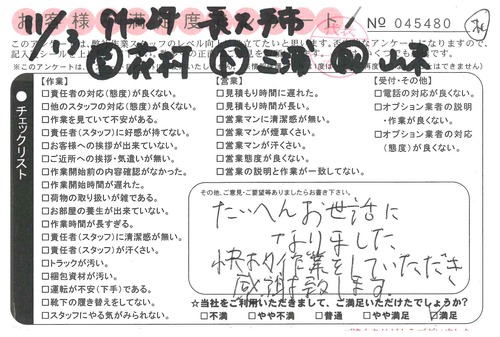 お客様満足度アンケート
№ 045480
11/3
長久手市
記入シールを上
【作業】
□責任者の対応(態度)が良くない。
□他のスタッフの対応(態度)が良くない。
□作業を見ていて不安がある。
□責任者(スタッフ)に好感が持てない。
□お客様への挨拶が出来ていない。
□ご近所への挨拶・気遣いが無い。
□作業開始前の内容確認がなかった。
□作業開始時間が遅れた。
□荷物の取り扱いが雑である。
□お部屋の養生が出来ていない。
□作業時間が長すぎる。
□責任者(スタッフ)に清潔感が無い。
□責任者(スタッフ)が汗くさい。
□トラックが汚い。
□梱包資材が汚い。
□運転が不安(下手)である。
□靴下の履き替えをしてない。
□スタッフにやる気がみられない。
【営業】
□見積もり時間に遅れた。
□見積もり時間が長い。
□営業マンに清潔感が無い。
□営業マンが煙草くさい。
□営業マンが汗くさい。
□営業態度が良くない。
□営業の説明と作業が一致してない。
【受付・その他】
□電話の対応が良くない。
□オプション業者の説明
・作業が良くない。
□オプション業者の対応
(態度)が良くない。
● チェックリスト
その他、ご意見・ご要望等ありましたらお書き下さい。
たいへんお世話に
なりました
快い作業をしていただき
感謝致します。
☆当社をご利用いただきまして、ご満足いただけたでしょうか?
□不満 □やや不満 □普通 □やや満足 □満足